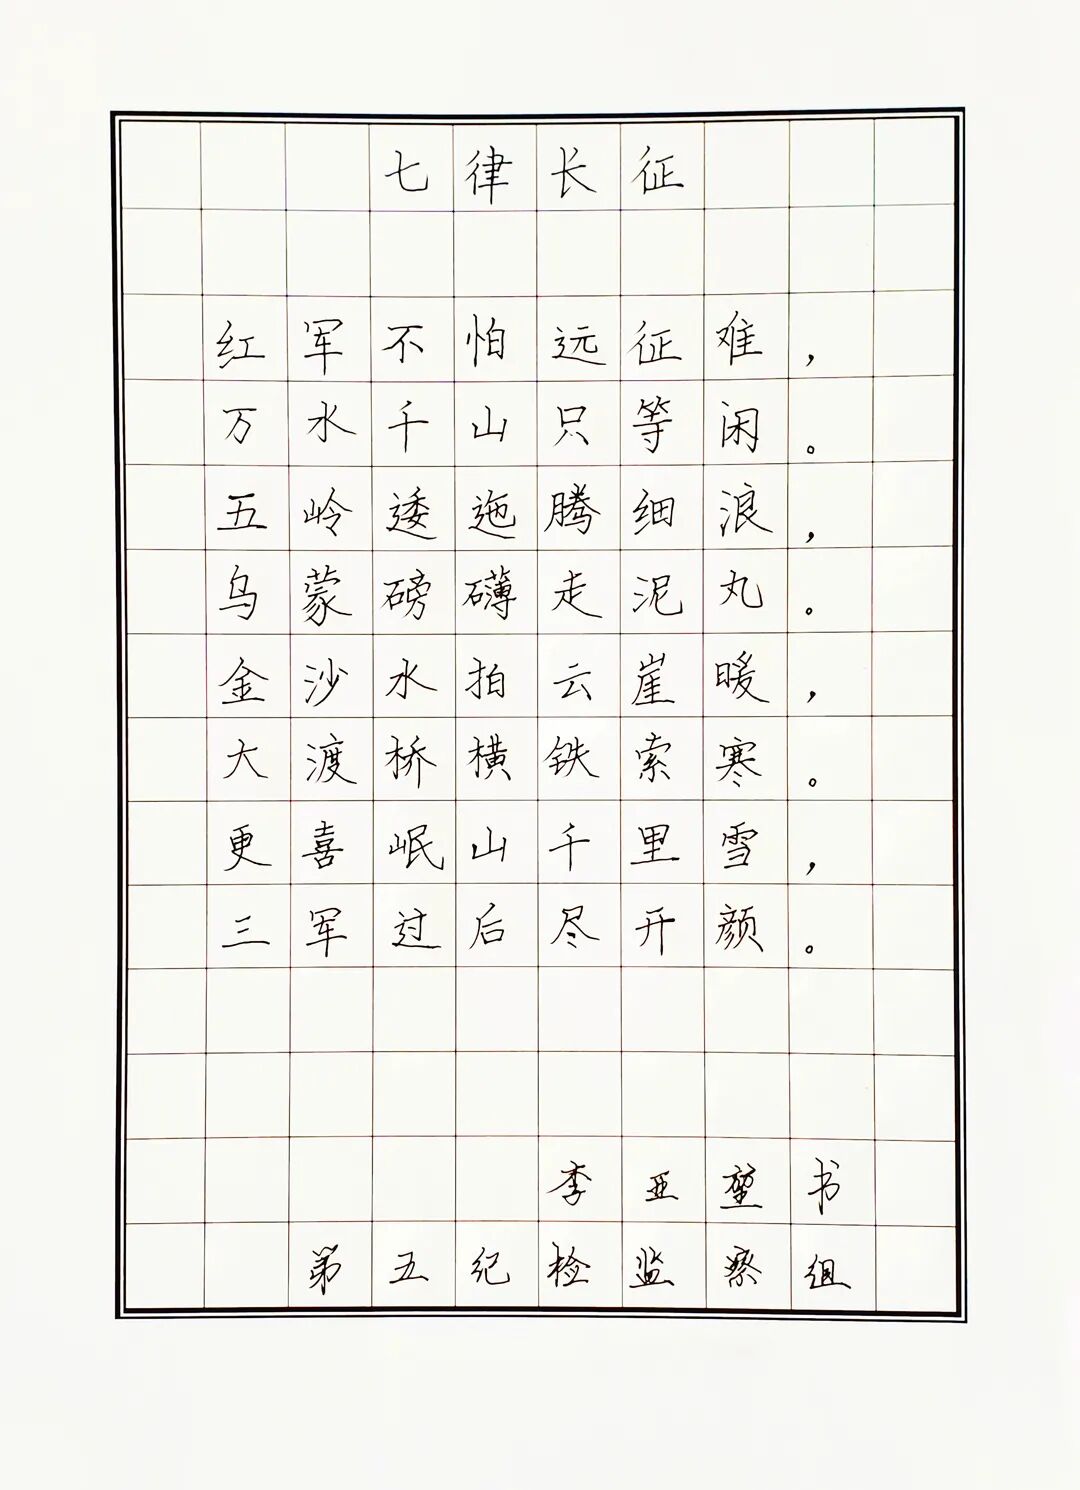 七律长征
红军不怕远征难，
万水千山只等闲。
五岭逶迤腾细浪，
乌蒙磅礴走泥丸。
金沙水拍云崖暖，
大渡桥横铁索寒。
更喜岷山千里雪，
三军过后尽开颜。
李亚堃书
第五纪检监察组